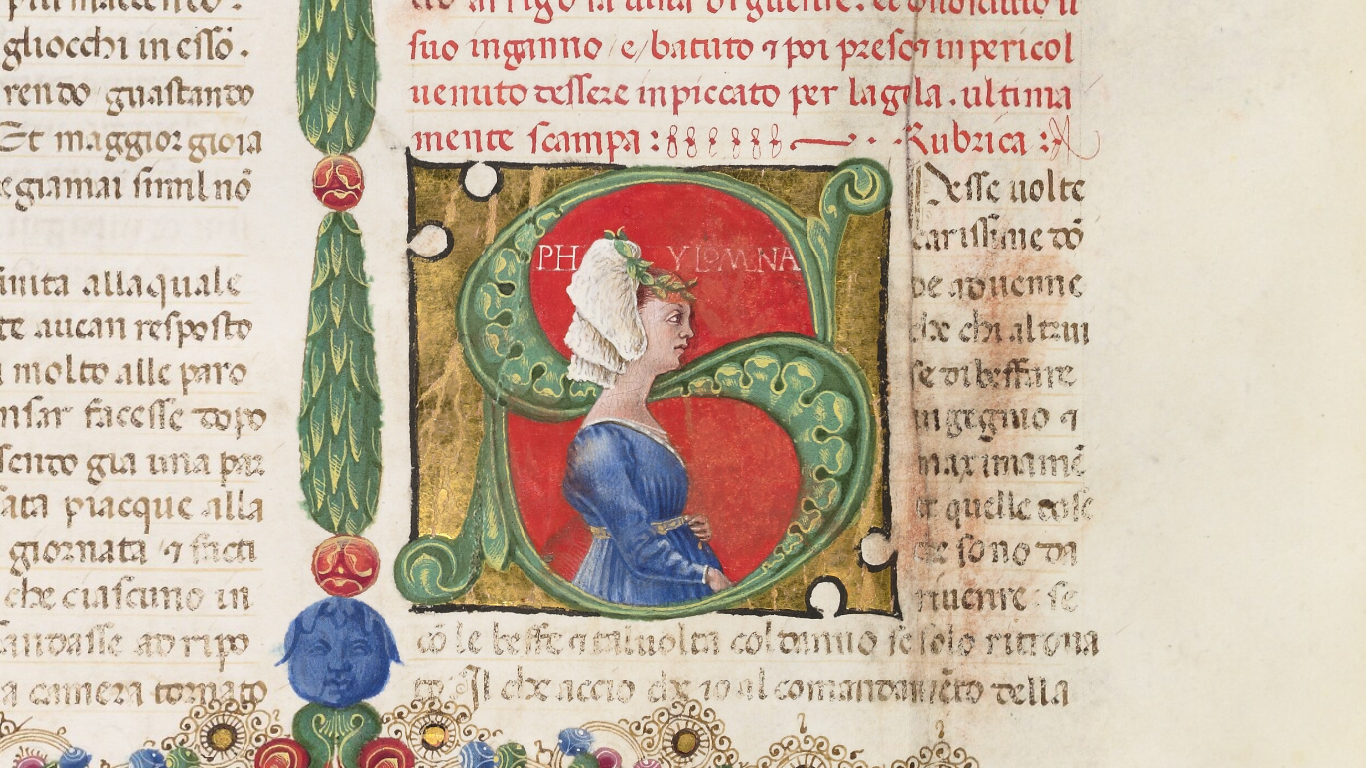 gliocchi in esso .
rendo guastando
Et maggior gioia
giamai simil nō
allaquale
resposto
molto alle paro
facesse dopo
gia una par
piacque alla
giornata ⁊ facti
che ciascuno in
ad ripo
camera tornato
suo inganno / e / batuto ⁊ poi preso ⁊ in pericol
uenuto dessere inpiccato per lagola . ultima
mente scampa : Rubrica :
PHYLOMNA
Pesse uolte
carissime dō
ne aduenne
che chi altrui
se di beffare
ingegnio ⁊
maximamē
te quelle cose
che sono da
riuerire . se
cō le beffe ⁊ taluolta col danno se solo ritroua
to . Il che accio che io al comandamēto della